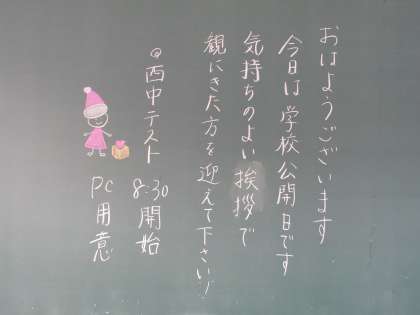 おはようございます
今日は学校公開日です
気持ちのよい挨拶で
観にきた方を迎えて下さい!
◎西中テスト
8:30開始
PC用意